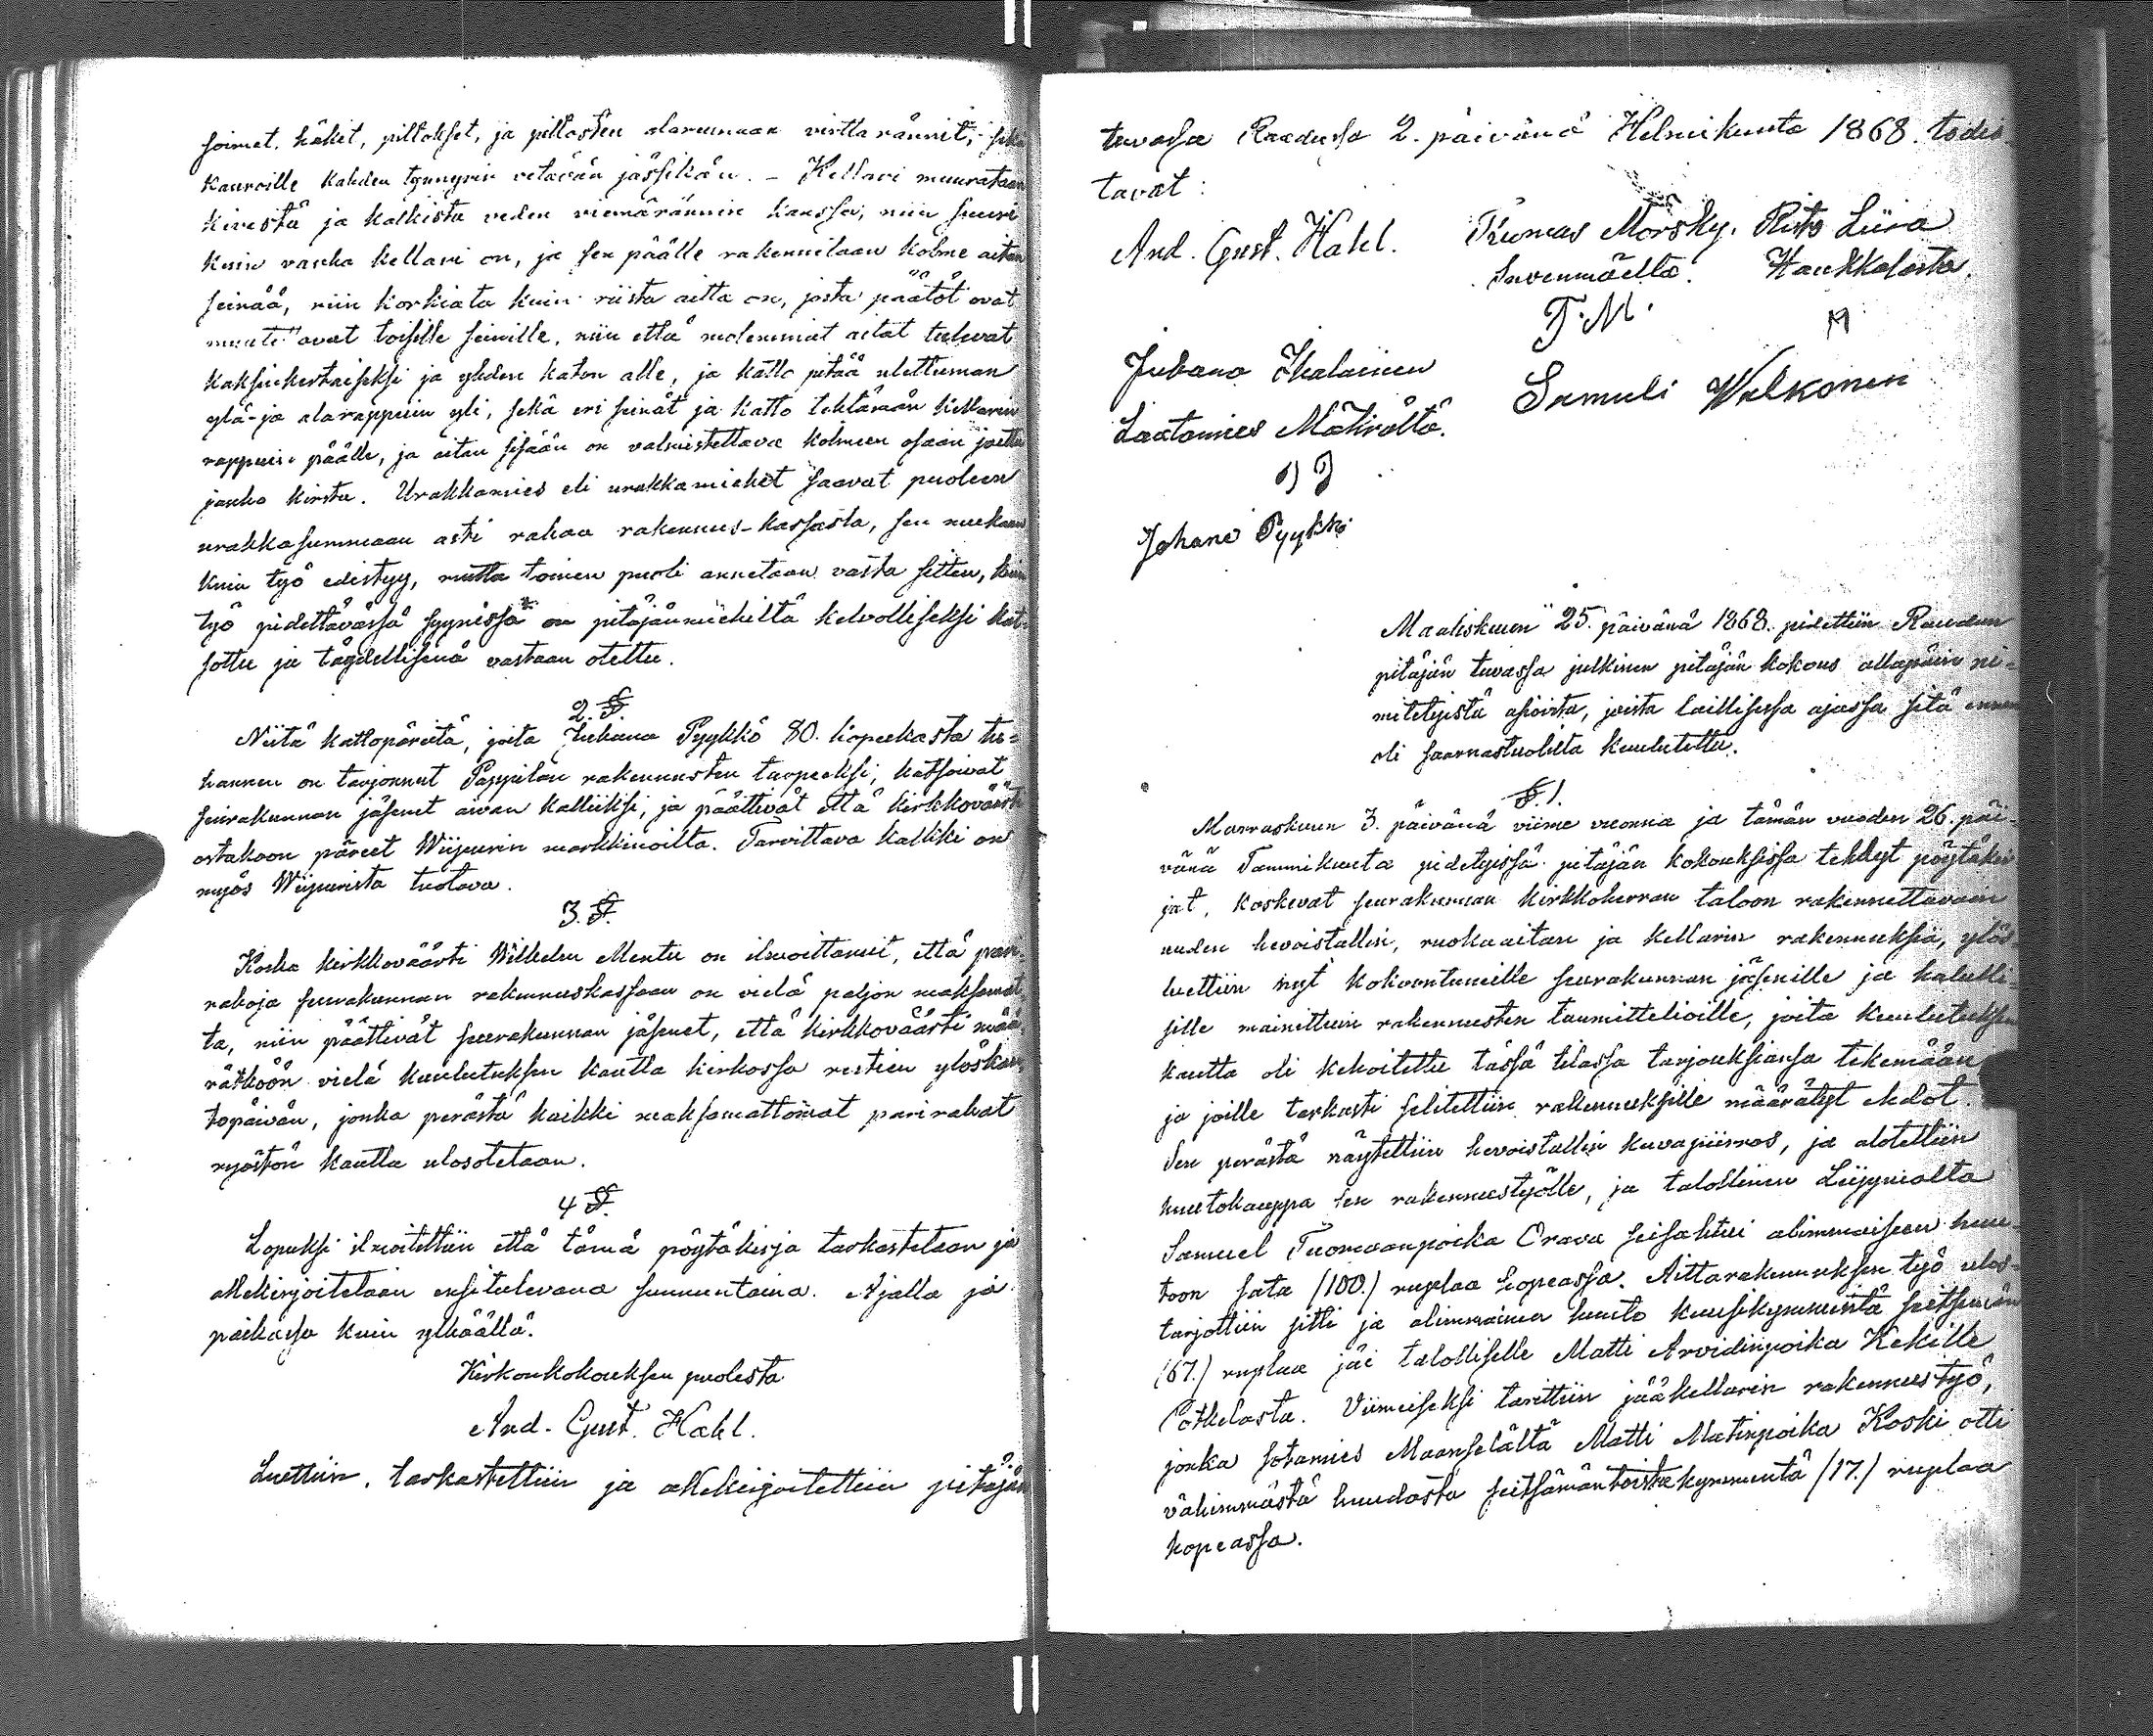 soimet, häkit, piltokset, ja piltosten alareunaan virtta rännit, sekä
kauroille kahden tynnyrin vetävän jässikän. – Kellari muurataan
kivestä ja kalkista veden viemärännin kanssa, niin suuri
kuin vanha kellari on, ja sen päälle rakennetaan kolme aitan
seinää, niin korkiata kuin riista aitta on, josta päätöt ovat
ovat toisille seinille, niin että molemmat aitat tulevat
kaksinkertaiseksi ja yhden katon alle, ja katto pitää ulettuman
ylä- ja alarappuin yli, sekä eri seinät ja katto tehtämän kellarin
rappuin päälle, ja aitan sisään on valmistettava kolmeen osaan jaettu
jauho kirstu. Urakkamies eli urakkamiehet saavat puoleen
urakkasummaan asti rahaa rakennus-kassasta, sen mukaan
kuin työ edistyy, mutta toinen puoli annetaan vasta sitten, kuin
työ pidettävässä syynissä on pitäjänmiehiltä kelvolliseksi kat-
sottu ja täydellisenä vastaan otettu.
2. §.
Niitä kattopäreitä, joita Juhana Pyykkö 80. kopeekasta tu-
hannen on tarjonnut Pappilan rakennusten tarpeeksi, katsoivat
seurakunnan jäsenet aivan kalliiksi, ja päättivät että kirkkoväärti
ostakoon päreet Wiipurin markkinoilta. Tarvittava kalkki on
myös Wiipurista tuotava.
3. §.
Koska kirkkoväärti Wilhelm Mentu on ilmoittanut, että pari-
rahoja seurakunnan rakennuskassaan on vielä paljon maksamat-
ta, niin päättivät seurakunnan jäsenet, että kirkkoväärti mää-
rätköön vielä kuulutuksen kautta kirkossa restien ylöskan-
topäivän, jonka perästä kaikki maksamattomat parirahat
ryöstön kautta ulosotetaan.
4 §.
Lopuksi ilmoitettiin että tämä pöytäkirja tarkastetaan ja
allekirjoitetaan ensitulevana sunnuntaina. Ajalla ja
paikassa kuin ylhäällä.
Kirkonkokouksen puolesta
And. Gust. Hahl.
Luettiin, tarkastettiin ja allekirjoitettiin pitäjän
tuvassa Raudussa 2. päivänä Helmikuuta 1868. todis-
tavat:
And. Gust. Hahl. Tuomas Mörsky. Risto Liira
Suvenmäeltä. Haukkalasta.
T. M.
Juhana Ikalainen
Samuli Walkonen
Lautamies Mäkrältä.
Johano Pyykkö
Maaliskuun 25. päivänä 1868. pidettiin Raudun
pitäjän tuvassa julkinen pitäjän kokous allapäin ni-
mitetyistä asioista, joista laillisessa ajassa sitä ennen
oli saarnastuolista kuulutettu.
§. 1.
Marraskuun 3. päivänä viime vuonna ja tämän vuoden 26. päi-
vänä Tammikuuta pidetyissä pitäjän kokouksissa tehdyt pöytäkir-
jat, koskevat seurakunnan kirkkoherran taloon rakennettavain
uuden hevoistallin, ruokaaitan ja kellarin rakennuksia, ylös
luettiin nyt kokoontuneille seurakunnan jäsenille ja halulli-
sille mainittuin rakennusten taumittelioille, joita kuulutuksen
kautta oli kehoitettu tässä tilassa tarjouksiansa tekemään
ja joille tarkasti selitettiin rakennuksille määrätyt ehdot.
Sen perästä näytettiin hevoistallin kuvapiirros, ja alotettiin
huutokauppa sen rakennustyölle, ja talollinen Leijpyniolta
Samuel Tuomaanpoika Orava seisahtui alimmaiseen huu-
toon sata (100.) ruplaa hopeassa. Aittarakennuksen työ ulos-
tarjottiin sitte ja alimmainen huuto kuusikymmentä seitsemän
(67.) ruplaa jäi talolliselle Matti Arvidinpoika Kekille
Potkelasta. Viimeiseksi tarittiin jääkellarin rakennustyö,
jonka sotamies Maanselältä Matti Matinpoika Koski otti
vähimmästä huudosta seitsämäntoistakymmentä (17.) ruplaa
hopeassa.